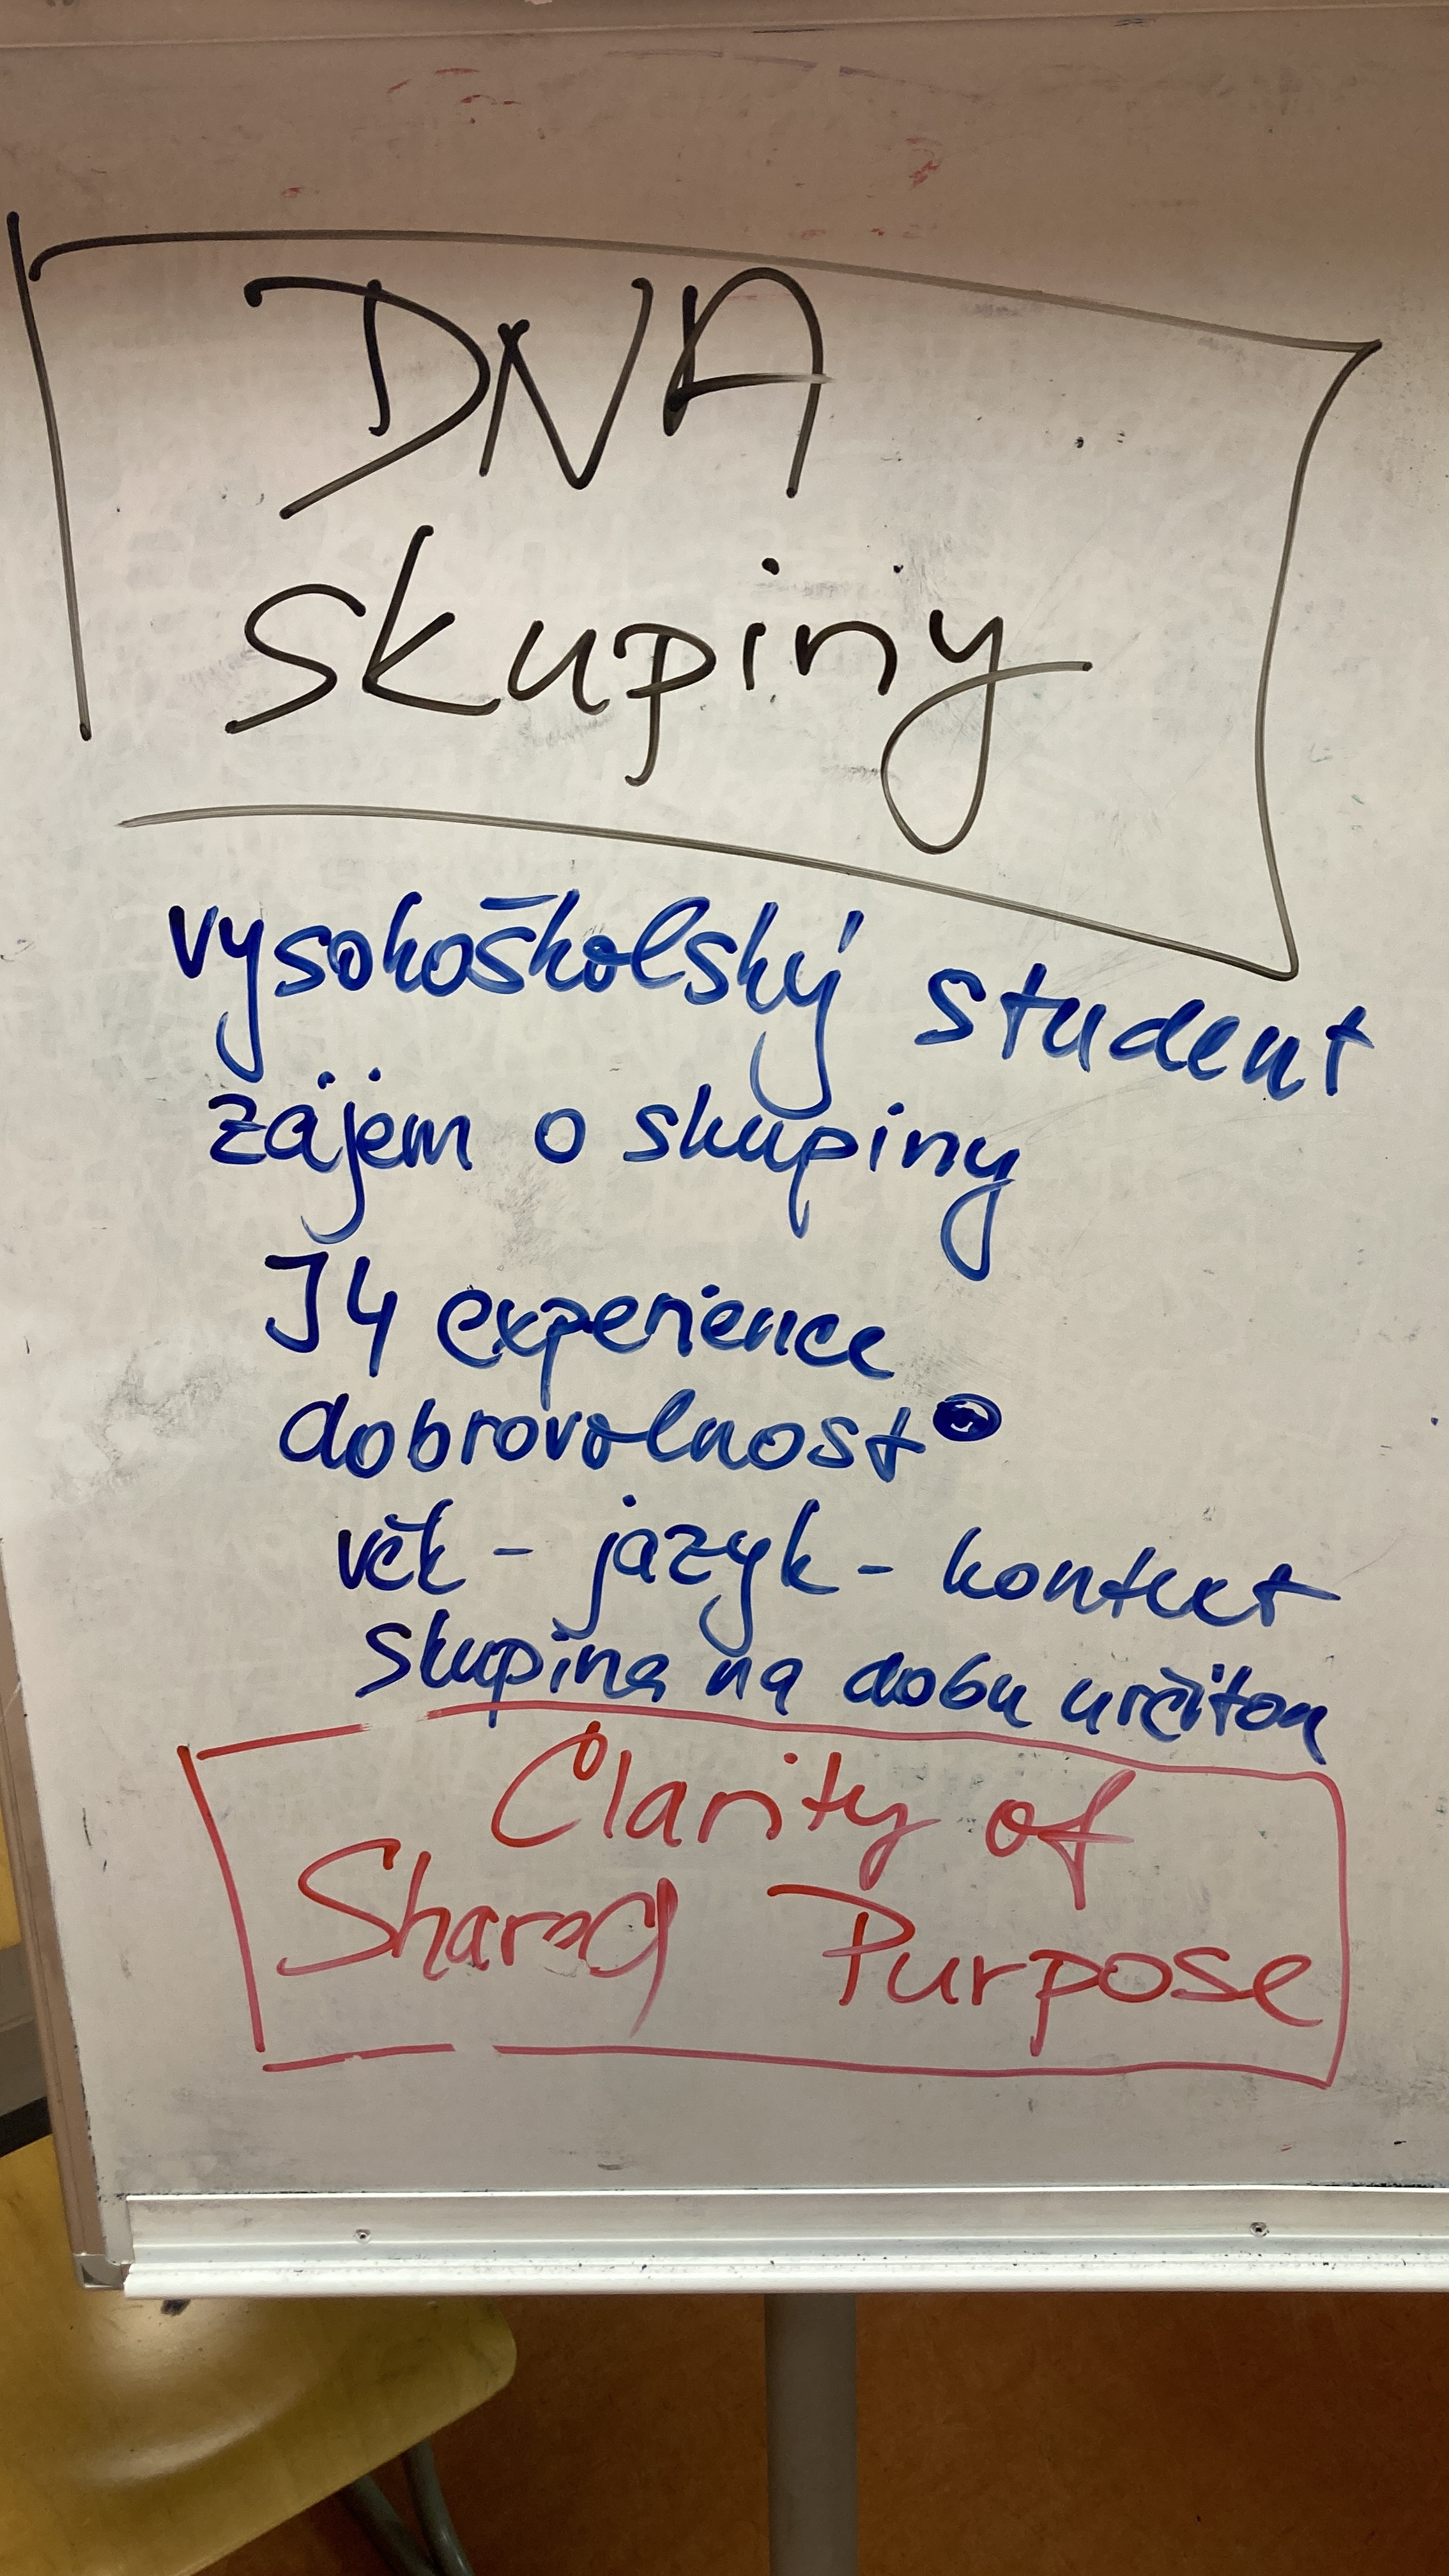 DNA
skupiny
vysokoškolský student
zájem o skupiny
J4 experience
dobrovolnost
věk - jazyk - kontext
skupina na dobu určitou
Clarity of
Shared Purpose